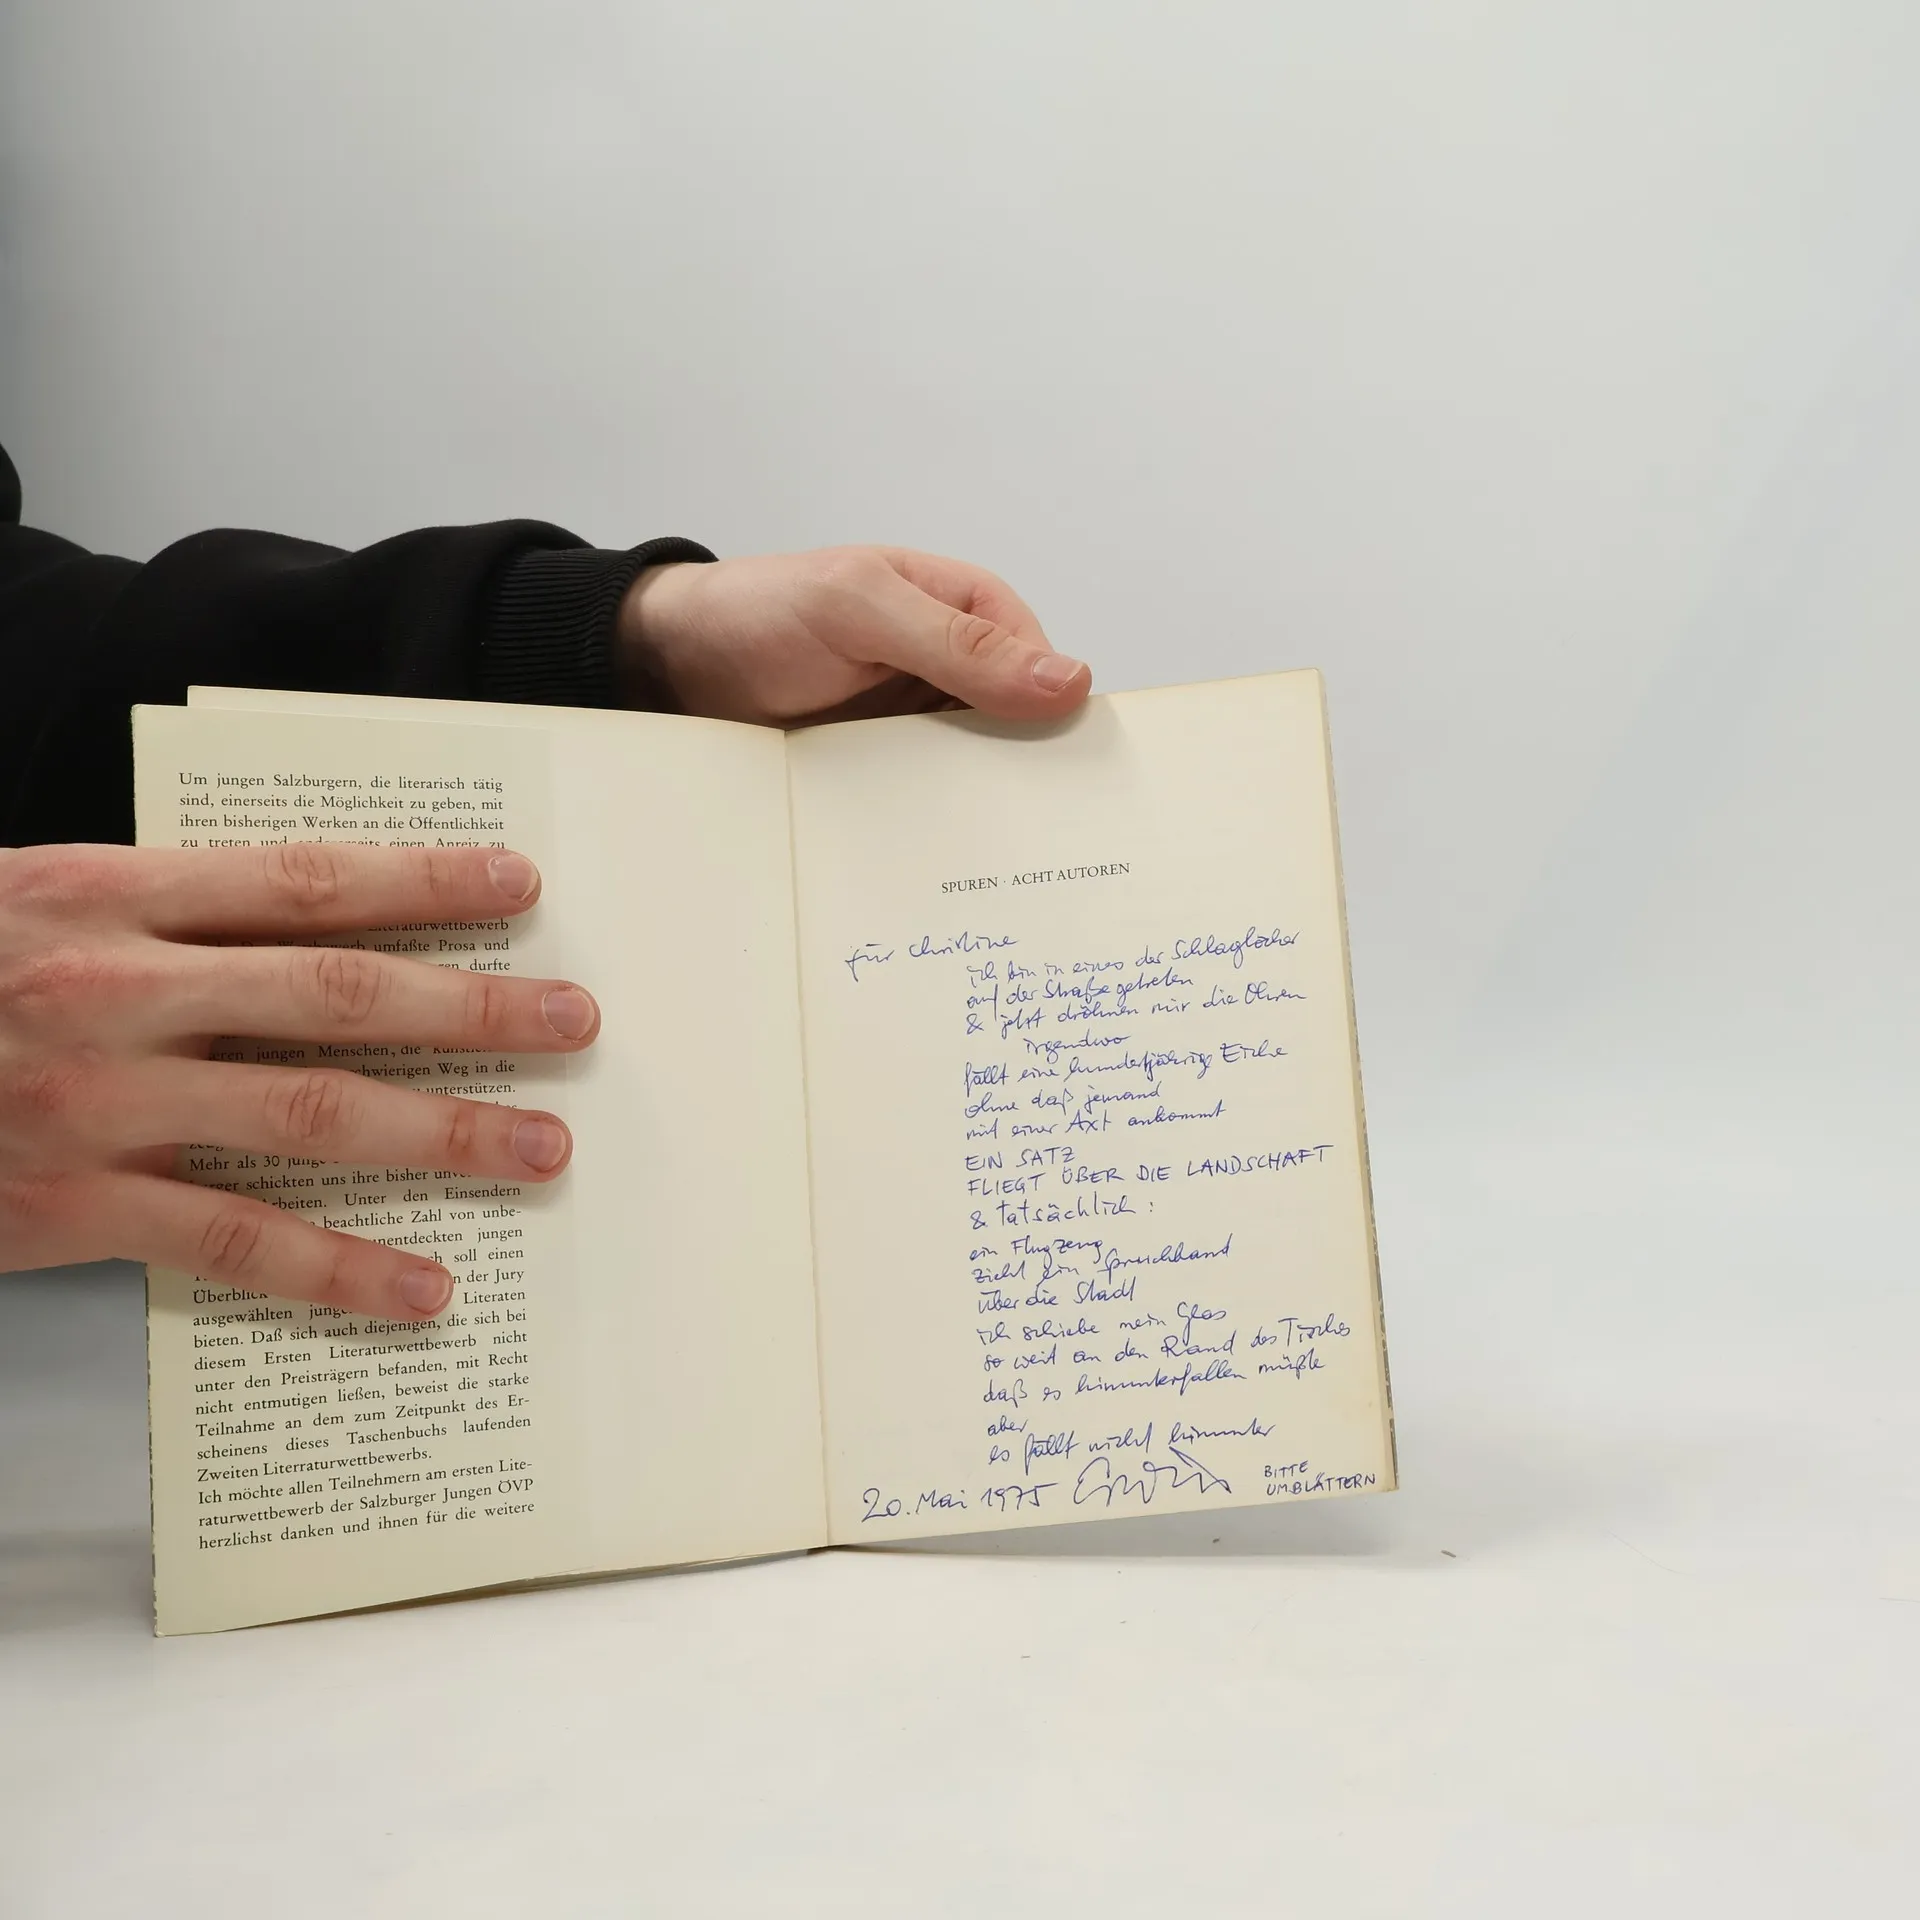 Um jungen Salzburgern, die literarisch tätig
sind, einerseits die Möglichkeit zu geben, mit
ihren bisherigen Werken an die Öffentlichkeit
zu treten und andererseits einen Anreiz zu
Literaturwettbewerb
umfaßte Prosa und
durfte
jungen Menschen, die
schwierigen Weg in die
unterstützen.
Mehr als 30
schickten uns ihre bisher
Unter den Einsendern
beachtliche Zahl von unbe-
unentdeckten jungen
soll einen
Überblick
n der Jury
ausgewählten
Literaten
bieten. Daß sich auch diejenigen, die sich bei
diesem Ersten Literaturwettbewerb nicht
unter den Preisträgern befanden, mit Recht
nicht entmutigen ließen, beweist die starke
Teilnahme an dem zum Zeitpunkt des Er-
scheinens dieses Taschenbuchs laufenden
Zweiten Literraturwettbewerbs.
Ich möchte allen Teilnehmern am ersten Lite-
raturwettbewerb der Salzburger Jungen ÖVP
herzlichst danken und ihnen für die weitere
SPUREN · ACHT AUTOREN
für Christine
ich bin in eines der Schlaglöcher
auf der Straße getreten
& jetzt dröhnen mir die Ohren
irgendwo
fällt eine hundertjährige Eiche
ohne daß jemand
mit einer Axt ankommt
EIN SATZ
FLIEGT ÜBER DIE LANDSCHAFT
& tatsächlich :
ein Flugzeug
zieht ein Spruchband
über die Stadt
ich schiebe mein Glas
so weit an den Rand des Tisches
daß es hinunterfallen müßte
aber
es fällt nicht hinunter
20. Mai 1975
BITTE
UMBLÄTTERN